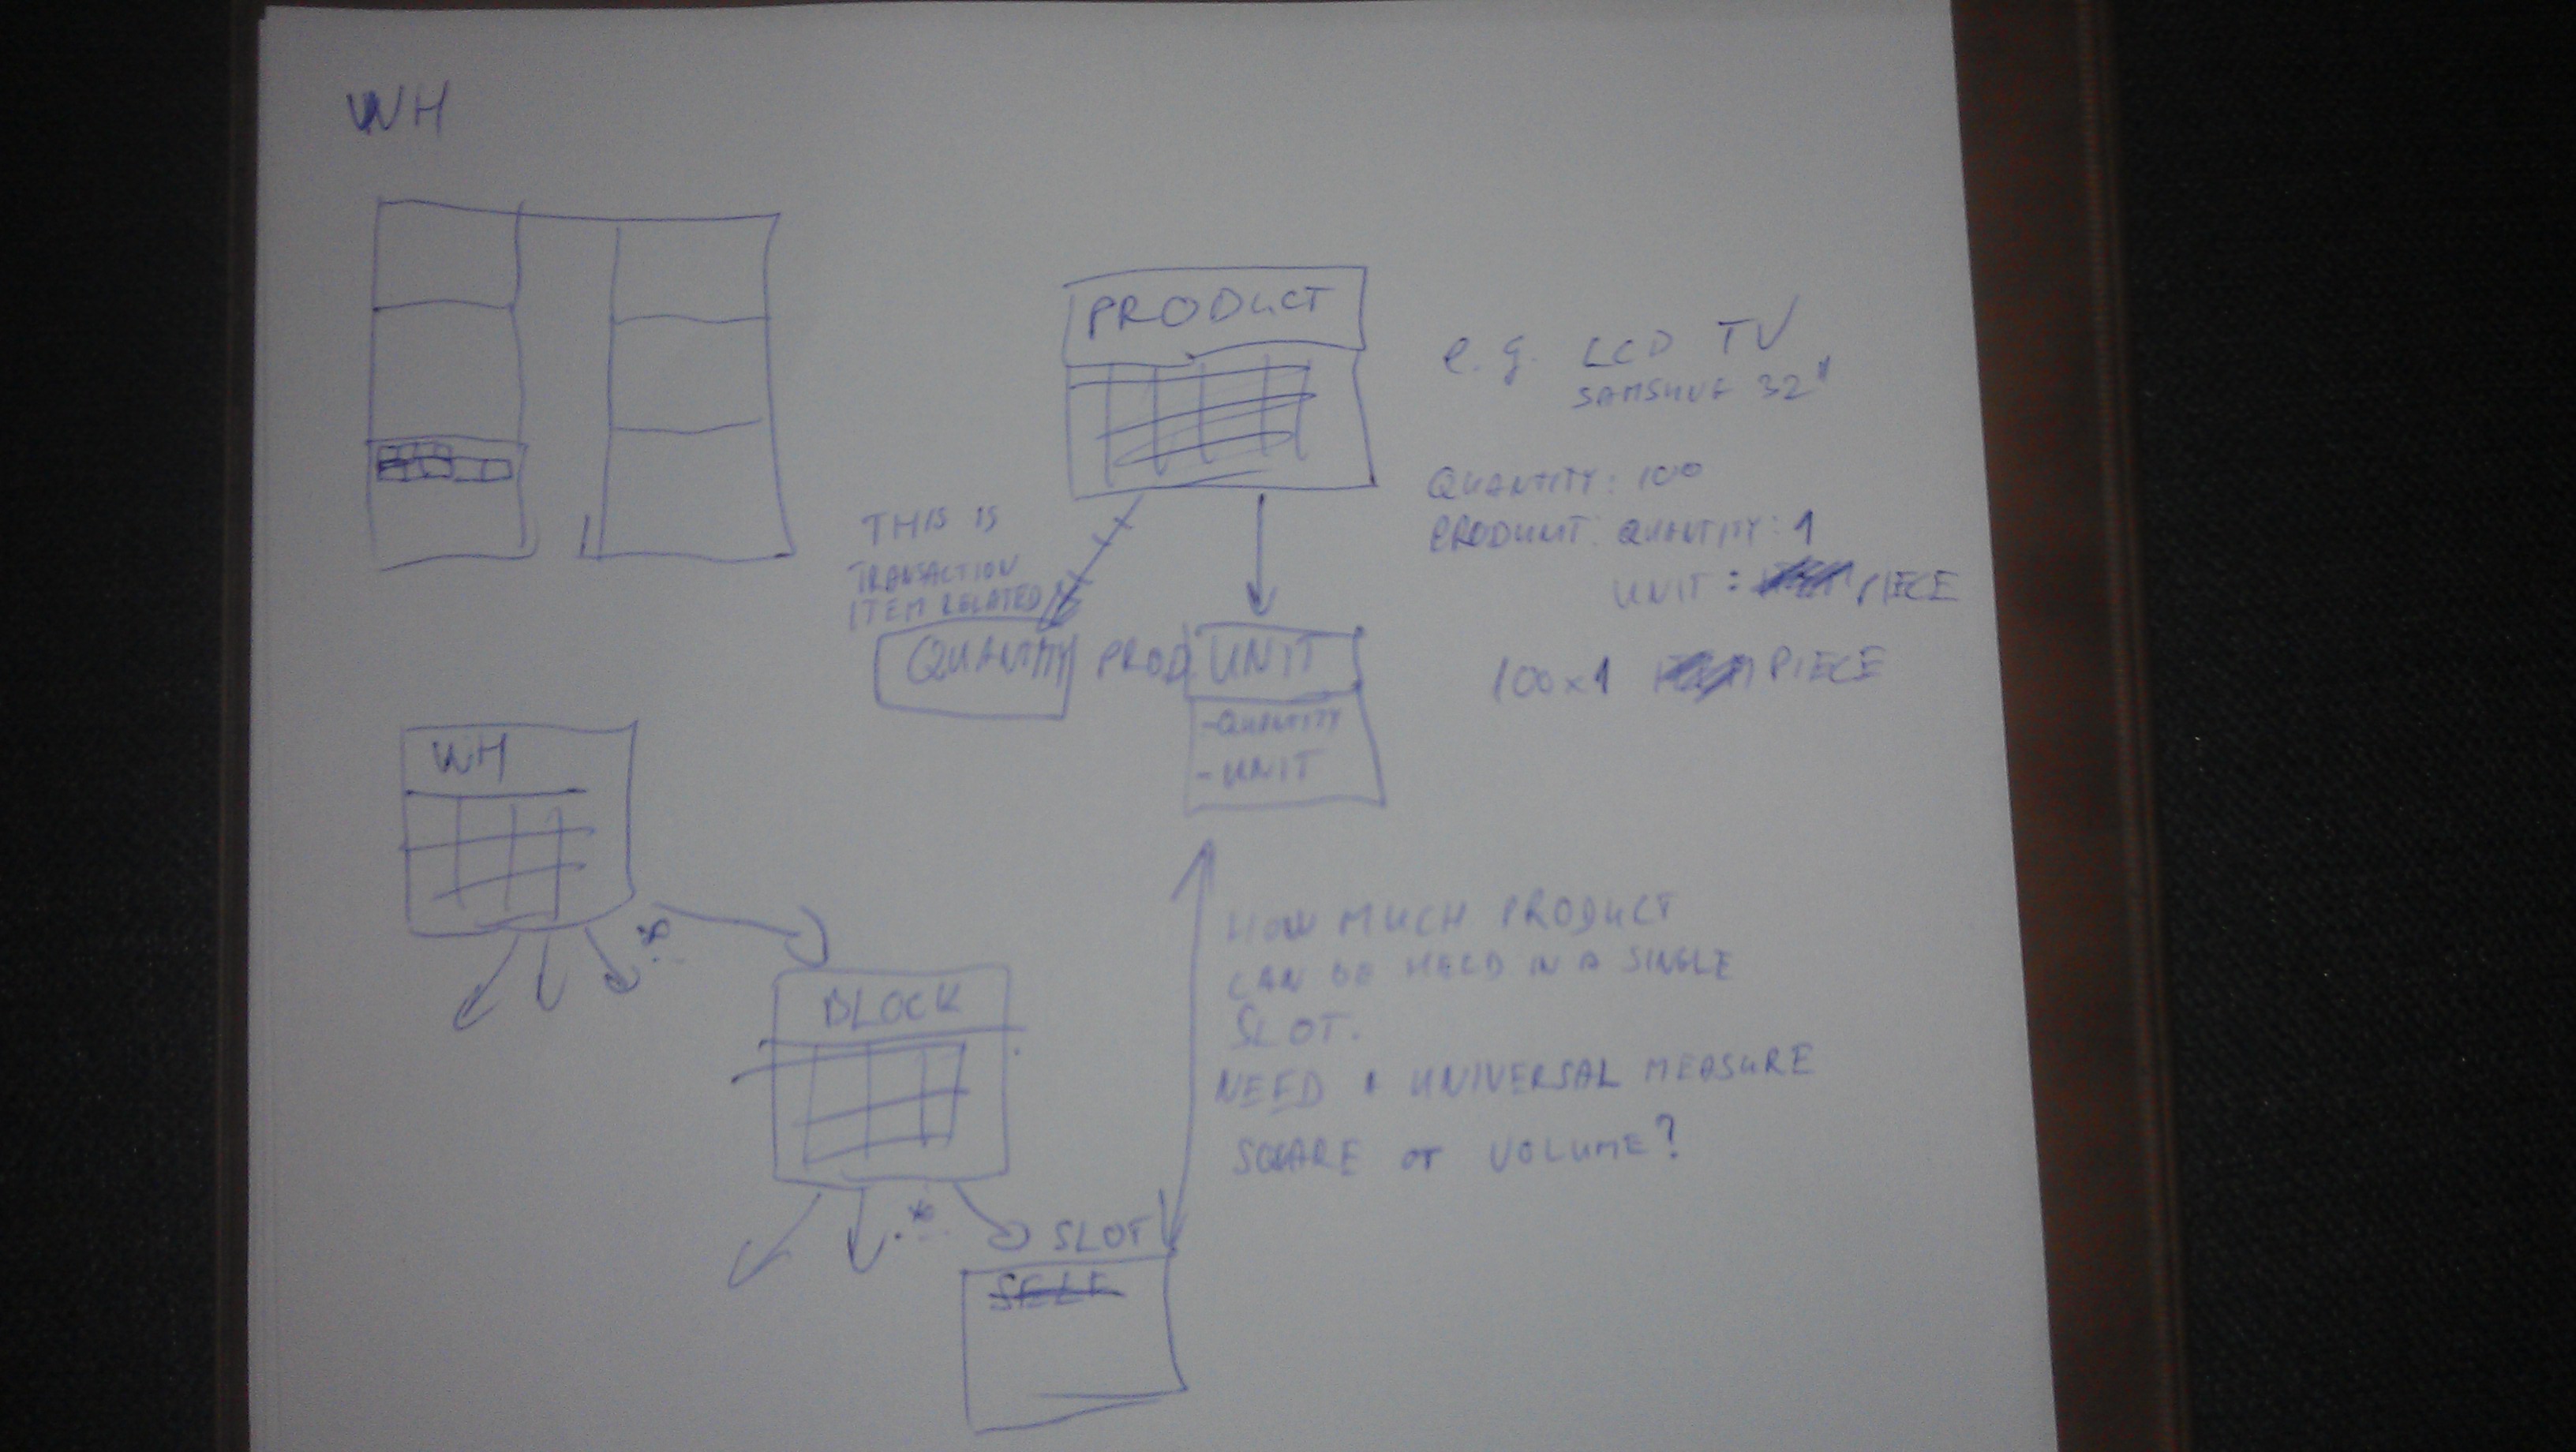 WH
PRODUCT
e.g. LCD TV
SAMSUNG 32"
QUANTITY: 100
PRODUKT: QUANTITY: 1
UNIT: PIECE
100x1 PIECE
THIS IS
TRANSACTION
ITEM RELATED
QUANTITY
PROD. UNIT
-QUANTITY
-UNIT
WH
BLOCK
SLOT
SELF
HOW MUCH PRODUCT
CAN BE HELD IN A SINGLE
SLOT.
NEED A UNIVERSAL MEASURE
SQUARE or VOLUME?